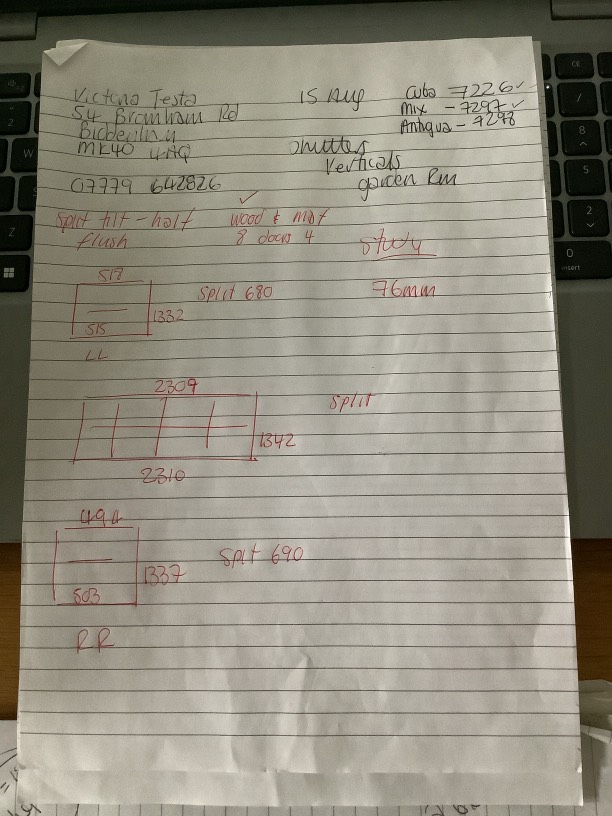 Victoria Testa
54 Bromham Rd
Biddenham
MK40 4AQ
07779 642826
15 Aug
Cuba 7226 ✓
Mix - 7297 ✓
Antigua - 7298
Shutters
Verticals
garden Rm
Split tilt - half
flush
✓
wood & mdf
8 doors 4
Study
76mm
518
Split 680
1332
515
LL
2309
Split
1342
2310
494
Split 690
1337
503
RR